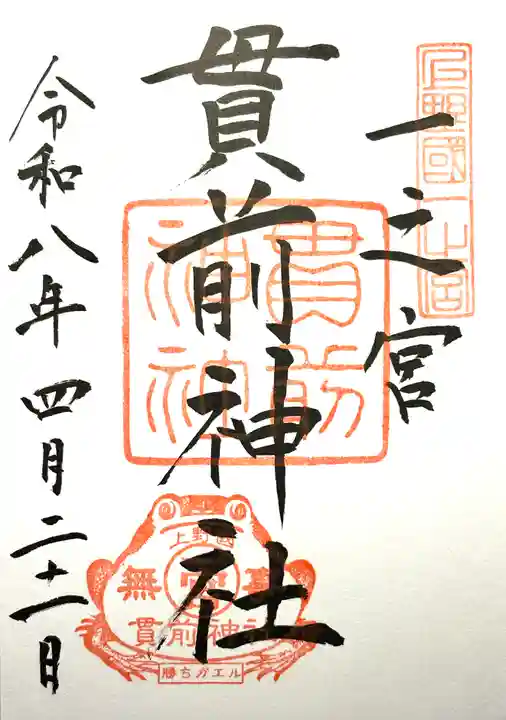 上野國一之宮
一之宮
貫前神社
貫前神社
上野國
無事
貫前神社
勝ちガエル
令和八年四月二十一日